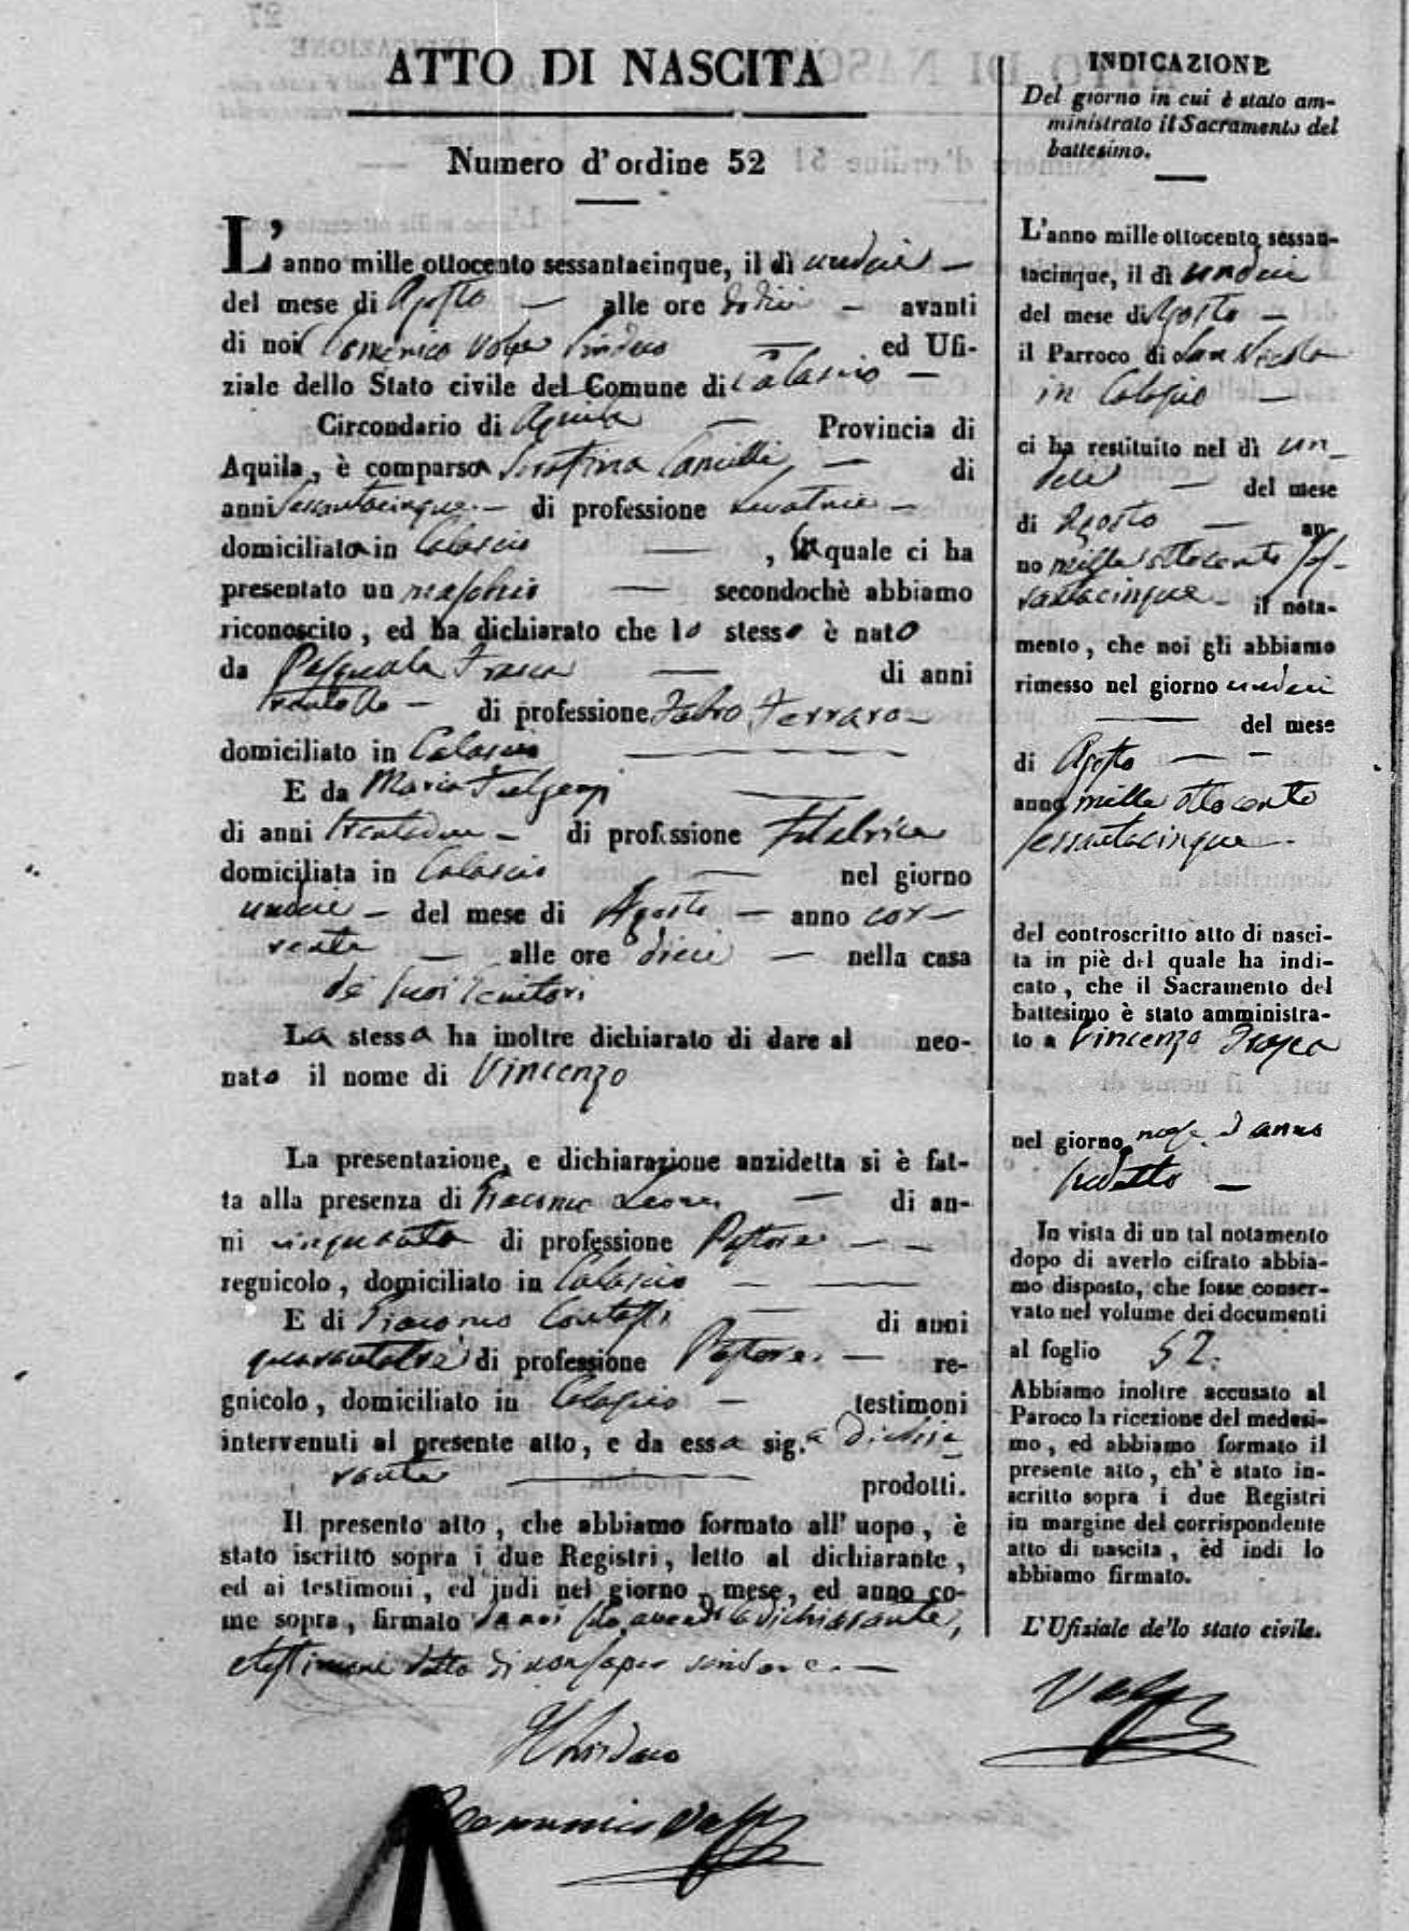 ATTO DI NASCITA
Numero d'ordine 52
L'anno mille ottocento sessantacinque, il dì undici
del mese di Agosto alle ore dodici avanti
di noi Domenico Volpe Sindaco ed Ufi-
ziale dello Stato civile del Comune di Calascio
Circondario di Aquila Provincia di
Aquila, è comparsa Serafina Camilli di
anni sessantacinque di professione Levatrice
domiciliata in Calascio, la quale ci ha
presentato un maschio secondochè abbiamo
riconoscito, ed ha dichiarato che lo stesso è nato
da Pasquale Frasca di anni
di professione Fabro Ferraro
domiciliato in Calascio
E da Maria Fulgenzi
di anni trentadue di professione Filatrice
domiciliata in Calascio nel giorno
undici del mese di Agosto anno cor-
rente alle ore dieci nella casa
de' suoi Genitori
La stessa ha inoltre dichiarato di dare al neo-
nato il nome di Vincenzo
La presentazione, e dichiarazione anzidetta si è fat-
ta alla presenza di Leone di an-
ni cinquanta di professione Pastore
regnicolo, domiciliato in Calascio
E di Giacomo di anni
quarantatre di professione Pastore re-
gnicolo, domiciliato in Calascio testimoni
intervenuti al presente atto, e da essa sig.a dichia-
rante prodotti.
Il presento atto, che abbiamo formato all' uopo, è
stato iscritto sopra i due Registri, letto al dichiarante,
ed ai testimoni, ed indi nel giorno, mese, ed anno co-
me sopra, firmato da noi avendo la dichiarante,
e testimoni detto di non saper scrivere.
Il Sindaco
Domenico Volpe
INDICAZIONE
Del giorno in cui è stato am-
ministrato il Sacramento del
battesimo.
L'anno mille ottocento sessan-
tacinque, il dì undici
del mese di Agosto
il Parroco di San Nicola
in Calascio
ci ha restituito nel dì un-
dici del mese
di Agosto an-
no mille ottocento ses-
santacinque il nota-
mento, che noi gli abbiamo
rimesso nel giorno undici
del mese
di Agosto
anno mille ottocento
sessantacinque
del controscritto atto di nasci-
ta in piè del quale ha indi-
cato, che il Sacramento del
battesimo è stato amministra-
to a Vincenzo Frasca
nel giorno mese ed anno
sudetto
In vista di un tal notamento
dopo di averlo cifrato abbia-
mo disposto, che fosse conser-
vato nel volume dei documenti
al foglio 52.
Abbiamo inoltre accusato al
Paroco la ricezione del medesi-
mo, ed abbiamo formato il
presente atto, ch' è stato in-
scritto sopra i due Registri
in margine del corrispondente
atto di nascita, ed indi lo
abbiamo firmato.
L'Ufiziale de'lo stato civile.
Volpe